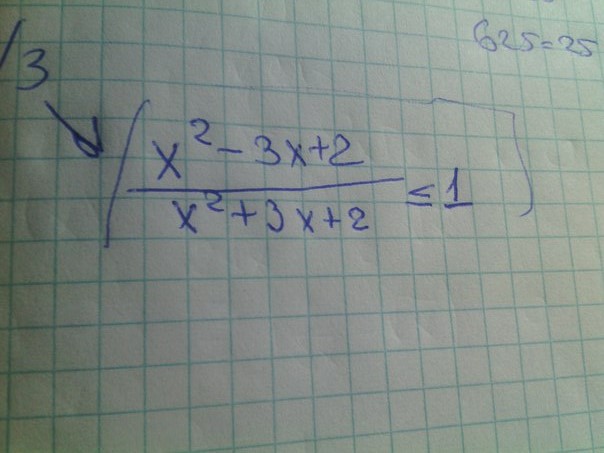 625=25
/3
(x²-3x+2
/
x²+3x+2 ≤ 1)